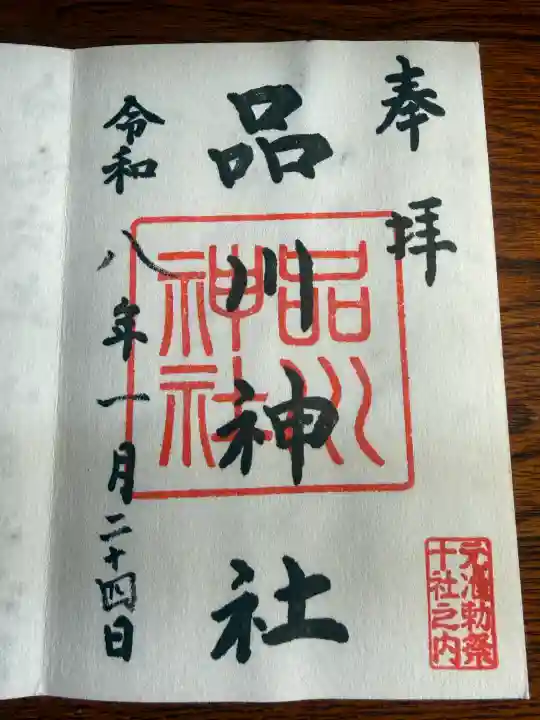 奉拝
品川神社
品川神社
令和八年一月二十四日
元准勅祭
十社之内